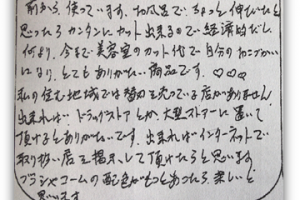 前から、使っています。お風呂で、ちょっと伸びたと
思ったらカンタンにカット出来るので経済的だし
何より、今まで美容室のカット代で自分のおこづかい
になり、とてもありがたい商品です。♡♡♡
私の住む地域では替刃を売っている店がありません
出来れば、ドラッグストアとか大型ストアーに置いて
頂けるとありがたいです。出来ればインターネットで
取り扱い店を掲示して頂けたらと思います
ブラシやコームの配色がもっとあったら、楽しいと
思います